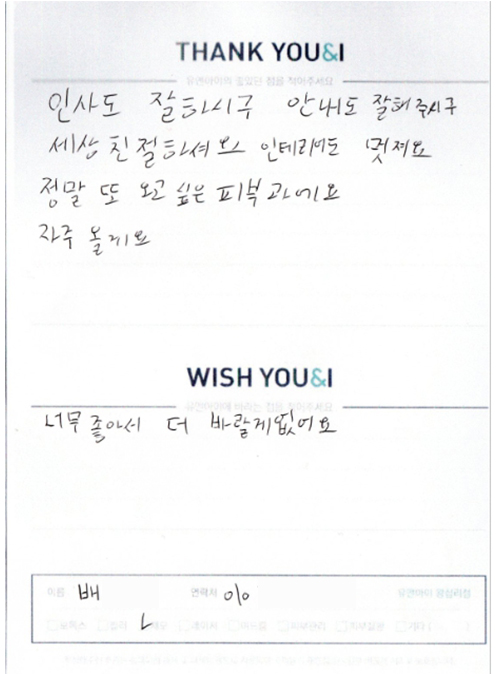 THANK YOU&I
유앤아이의 좋았던 점을 적어주세요
인사도 잘하시구 안내도 잘해주시구
세상 친절하셔요 인테리어도 멋져요
정말 또 오고싶은 피부과에요
자주 올게요
WISH YOU&I
유앤아이에 바라는 점을 적어주세요
너무 좋아서 더 바랄게없어요
이름 배 연락처 010 유앤아이 왕십리점
보톡스 필러 제모 레이저 리프팅 피부관리 피부질환 기타